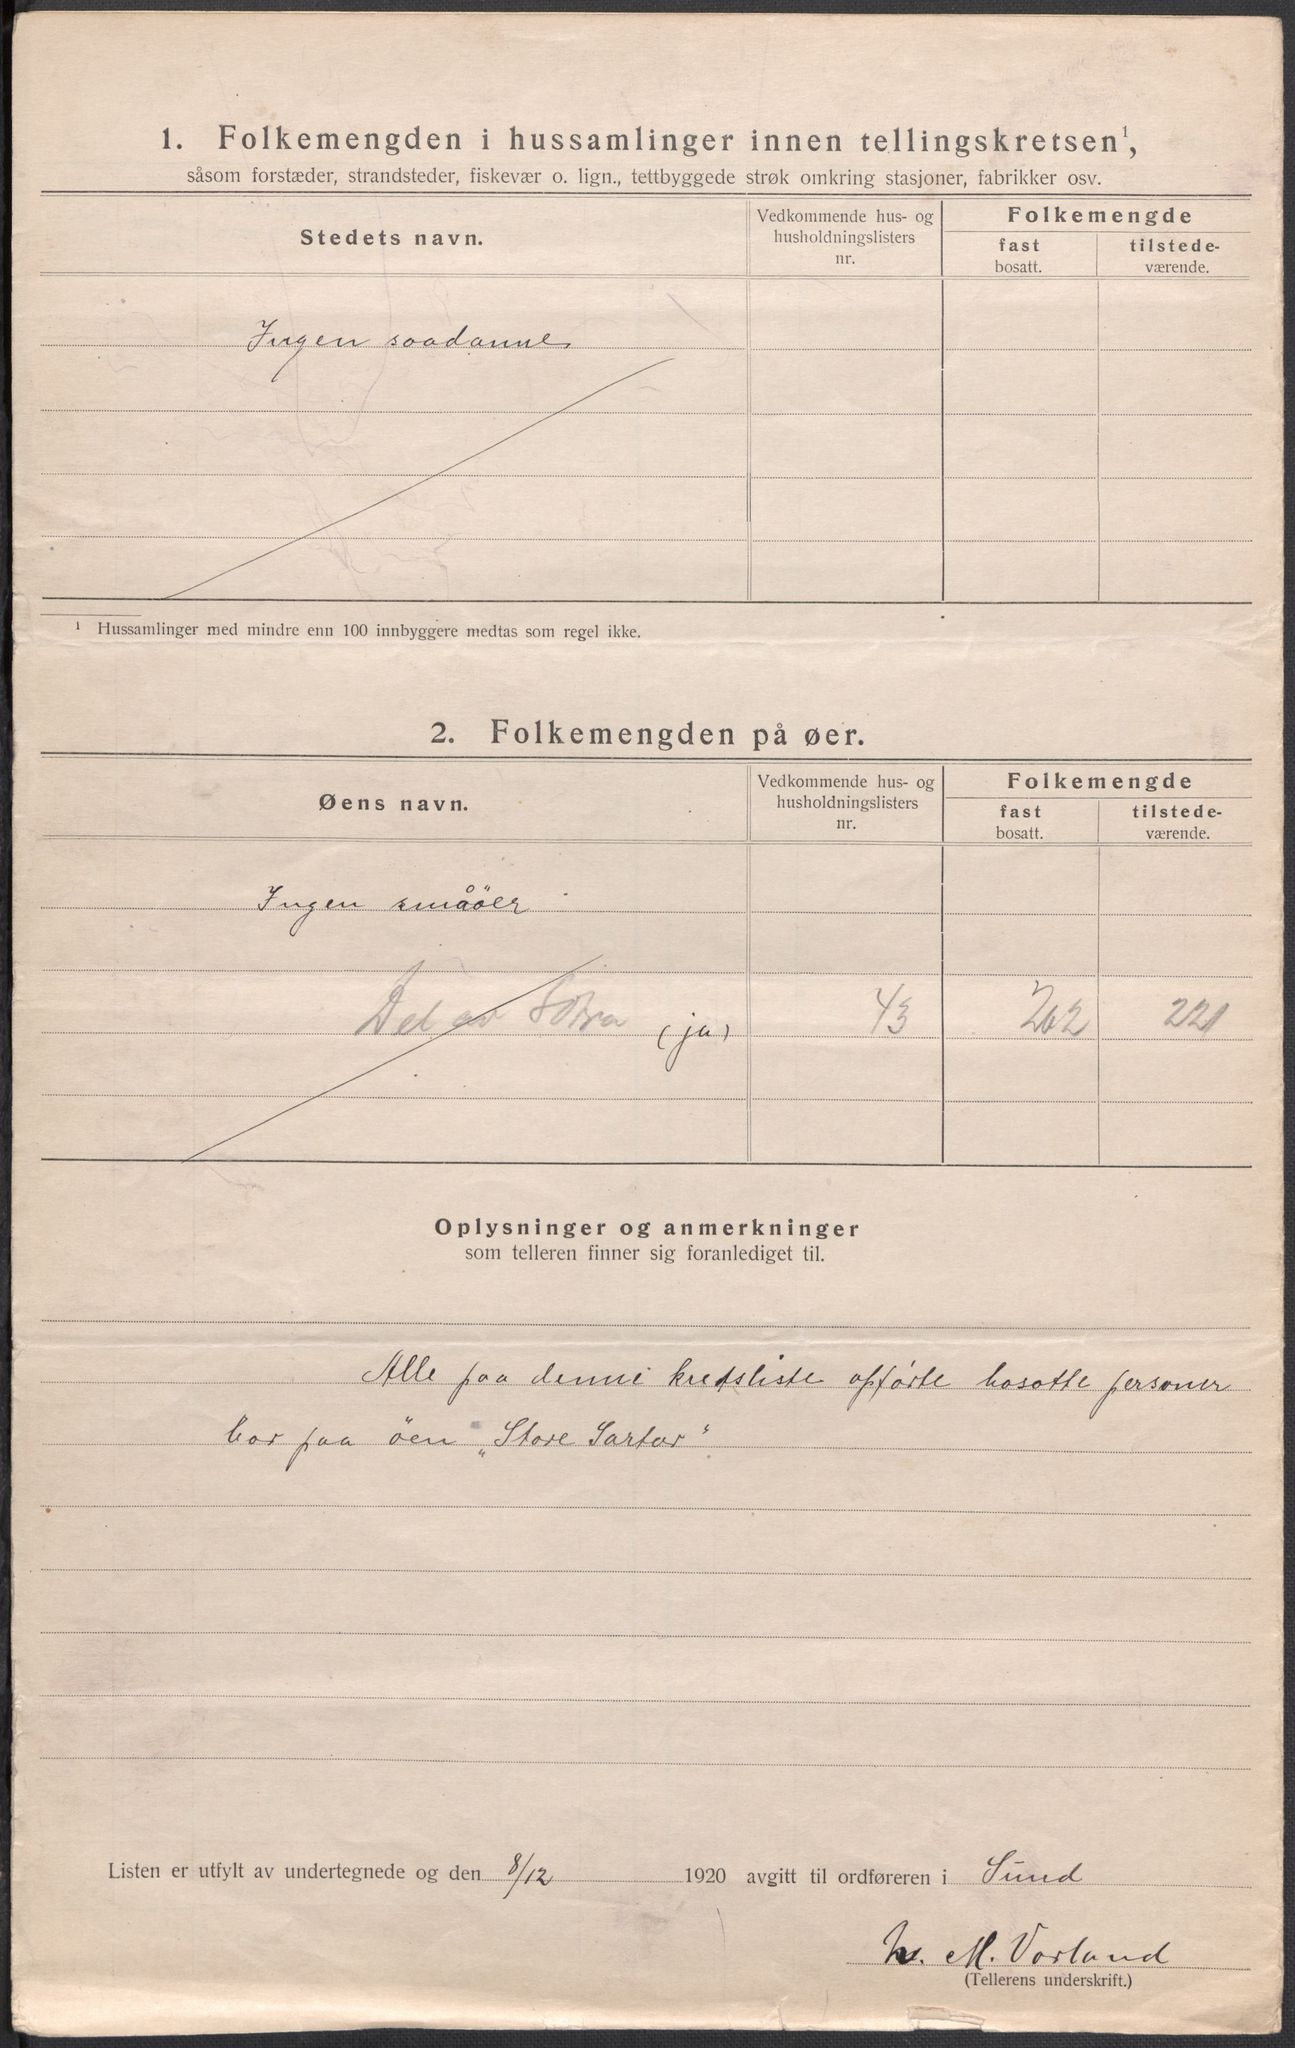 1. Folkemengden i hussamlinger innen tellingskretsen¹,
såsom forstæder, strandsteder, fiskevær o. lign., tettbyggede strøk omkring stasjoner, fabrikker osv.
Stedets navn.
Vedkommende hus- og
husholdningslisters
nr.
Folkemengde
fast
bosatt.
tilstede-
værende.
Ingen saadanne
¹ Hussamlinger med mindre enn 100 innbyggere medtas som regel ikke.
2. Folkemengden på øer.
Øens navn.
Vedkommende hus- og
husholdningslisters
nr.
Folkemengde
fast
bosatt.
tilstede-
værende.
Ingen småöer
Del av Sotra (ja) 43 262 221
Oplysninger og anmerkninger
som telleren finner sig foranlediget til.
Alle paa denne kredsliste opförte bosatte personer
bor paa öen „Store Sartor"
Listen er utfylt av undertegnede og den 8/12 1920 avgitt til ordføreren i Sund
M. Vorland
(Tellerens underskrift.)